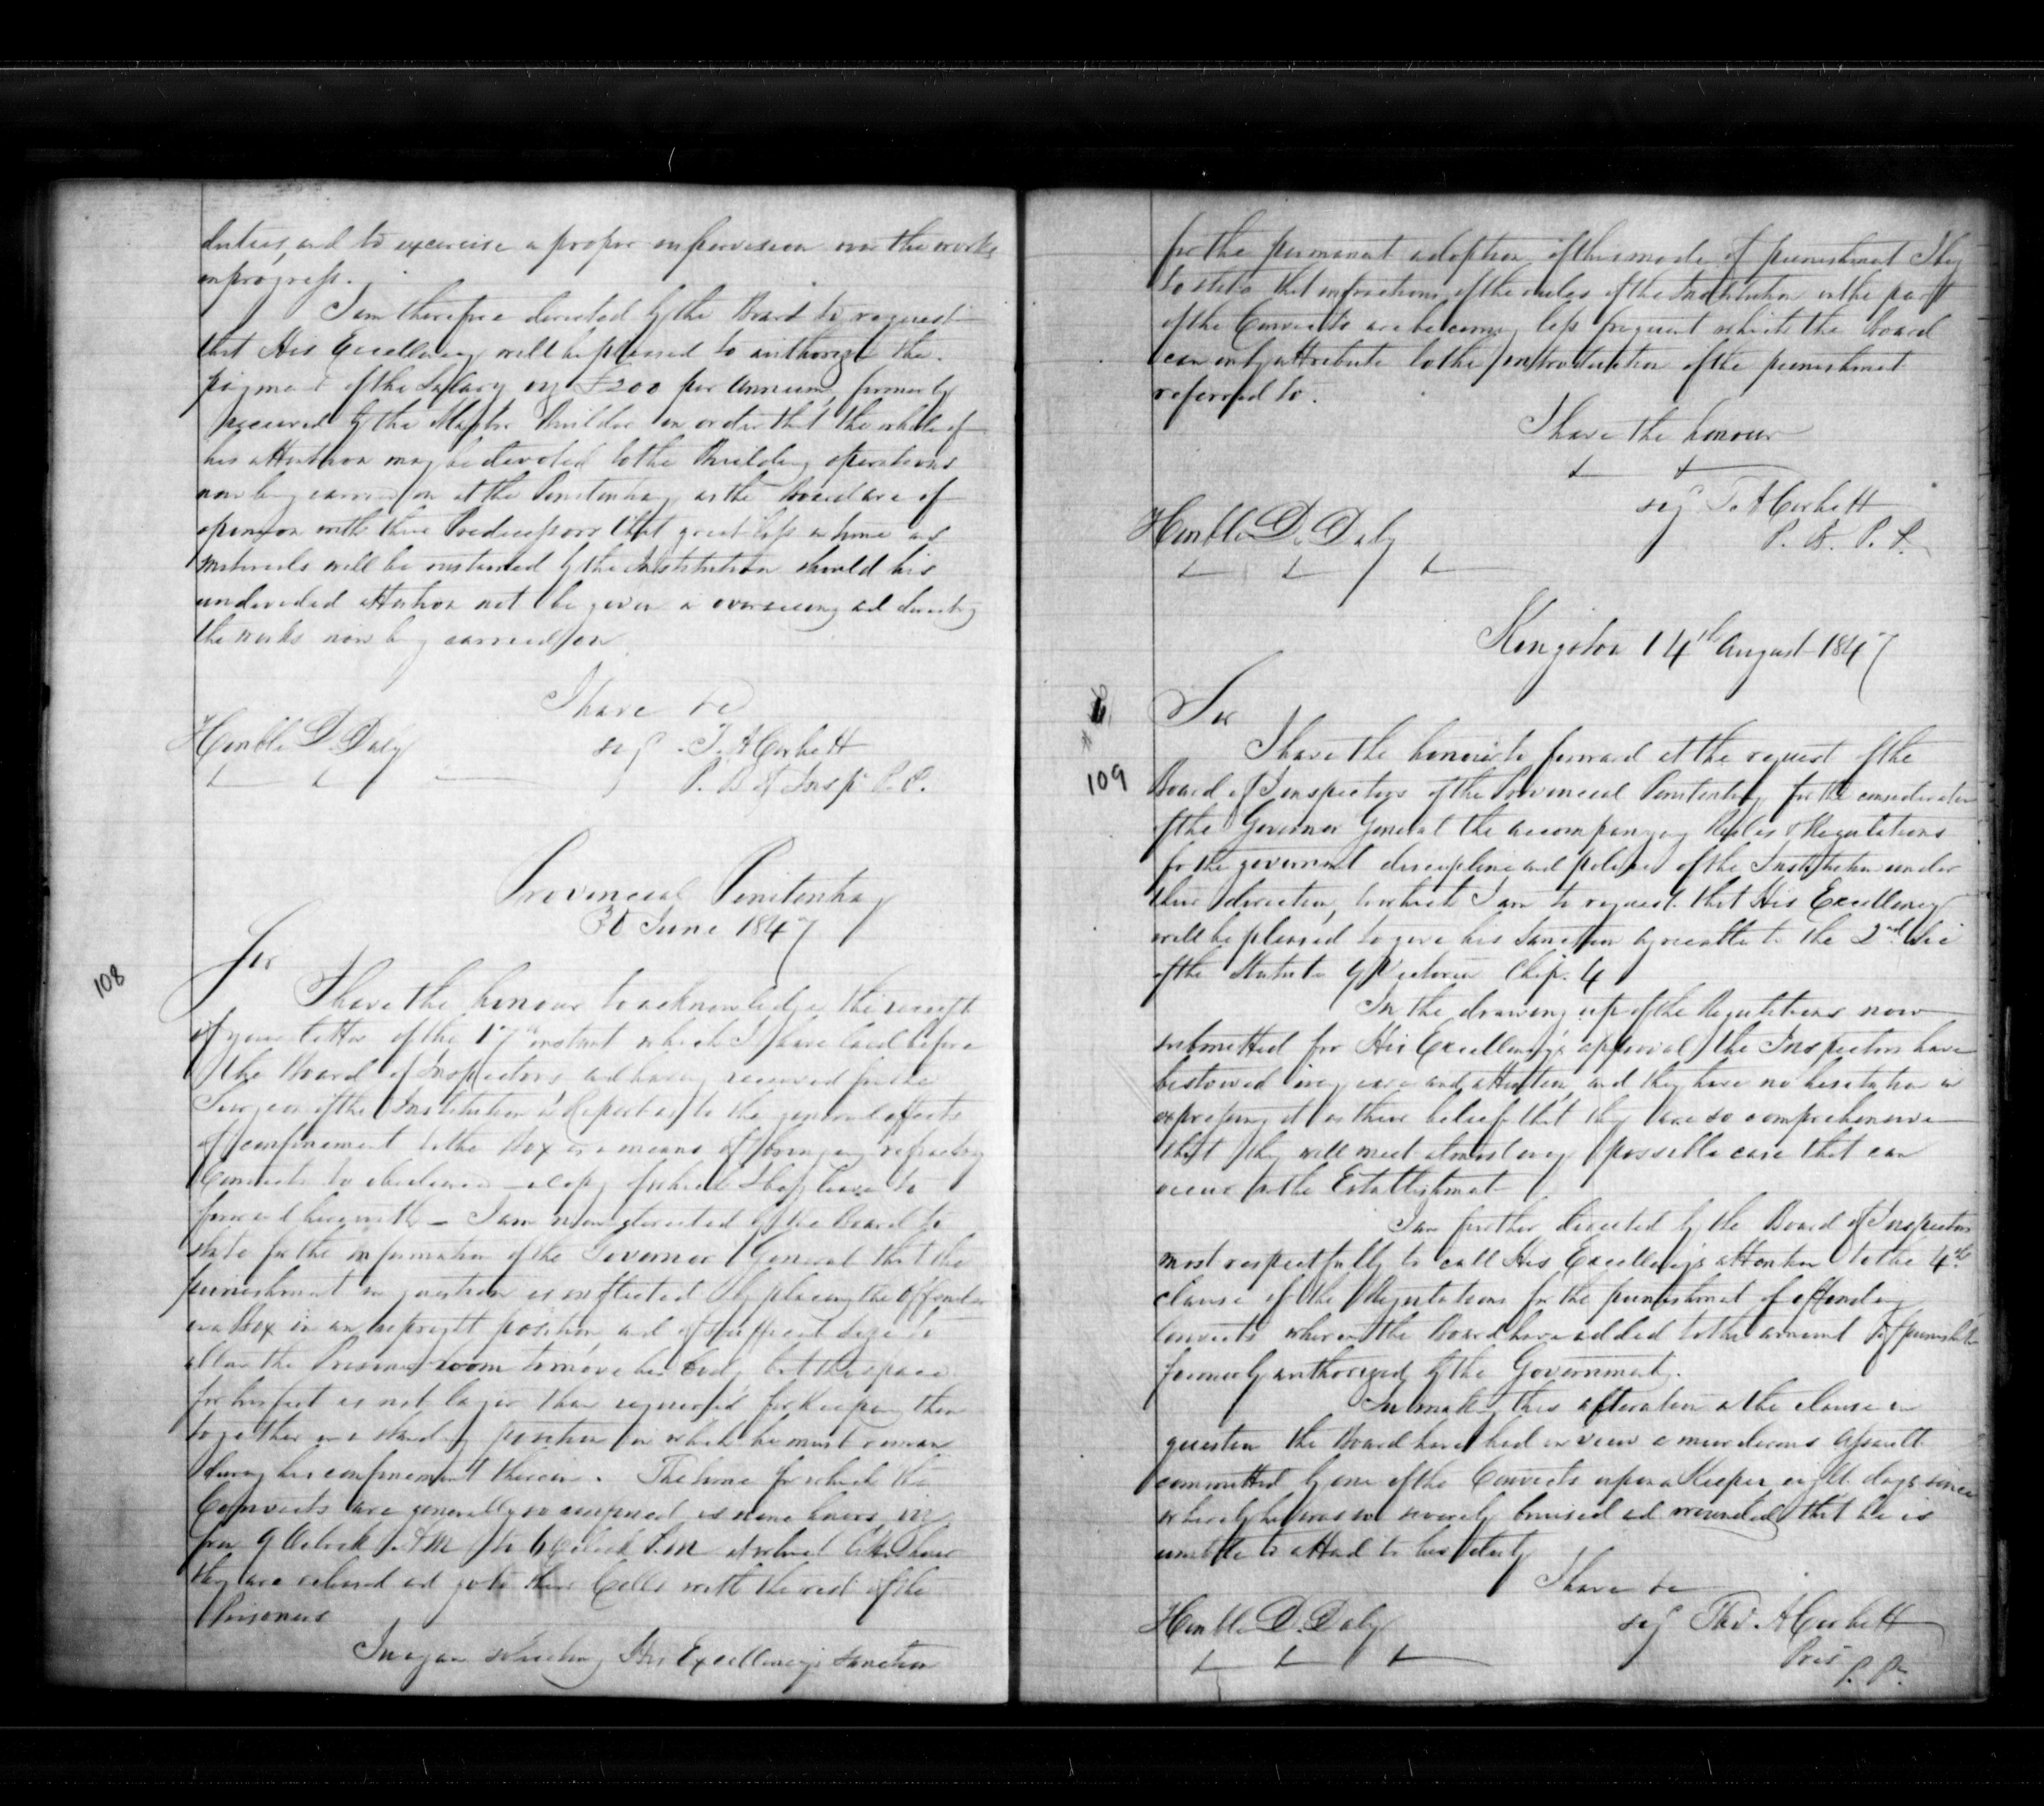 duties, and to exercise a proper supervision over the works
in progress.
I am therefore directed by the Board to request
that His Excellency will be pleased to authorize the
payment of the Salary viz £200 per Annum, formerly
received by the Master Builder in order that the whole of
his attention may be devoted to the Building operations
now being carried on at the Penitentiary as the Board are of
opinion with their Predecessors that great loss in time and
materials will be sustained by the Institution should his
undivided attention not be given in overseeing and directing
the works now being carried on
I have &c
Honble D. Daly
sig T. A Corbett
P. B of Insp P. P.
Provincial Penitentiary
30 June 1847
108
Sir
I have the honour to acknowledge the receipt
of your letter of the 17th instant which I have laid before
the Board of Inspectors and having received from the
Surgeon of the Institution a Report as to the general effects
of confinement to the Box as a means of bringing refractory
Convicts to obedience — a copy of which I beg leave to
forward herewith — I am now directed by the Board to
state for the information of the Governor General that the
punishment in question is inflicted by placing the offender
in a Box in an upright position and of sufficient size to
allow the Prisoner room to move his body, but the space
for his feet is not larger than required for keeping them
together in a standing position in which he must remain
during his confinement therein. The time for which the
Convicts are generally so confined is nine hours, viz
from 9 Oclock A M to 6 Oclock P.M at which latter hour
they are released and go to their Cells with the rest of the
Prisoners
In again soliciting His Excellency's sanction
for the permanent adoption of this mode of punishment I beg
to state that infractions of the rules of the Institution on the part
of the Convicts are becoming less frequent which the Board
can only attribute to the introduction of the punishment
referred to.
I have the honour
Honble D. Daly
sig T. A Corbett
P. B. P. P.
Kingston 14th August 1847
109
Sir
I have the honour to forward at the request of the
Board of Inspectors of the Provincial Penitentiary for the consideration
of the Governor General the accompanying Rules & Regulations
for the government discipline and police of the Institution under
their direction, to which I am to request that His Excellency
will be pleased to give his Sanction agreeable to the 2nd Sec
of the Statute 9 Victoria Chap. 4
In the drawing up of the Regulations now
submitted for His Excellency's approval the Inspectors have
bestowed every care and attention, and they have no hesitation in
expressing it as their belief that they are so comprehensive
that they will meet almost every possible case that can
occur in the Establishment
I am further directed by the Board of Inspectors
most respectfully to call His Excellency's attention to the 4th
clause of the Regulations for the punishment of offending
convicts wherein the Board have added to the amount of punishmt
formerly authorized by the Government.
In making this alteration in the clause in
question the Board have had in view a murderous assault
committed by one of the Convicts upon a Keeper eight days since
whereby he was so severely bruised and wounded that he is
unable to attend to his duty
I have &c
Honble D. Daly
sig Thos. A Corbett
Pres
P. Py